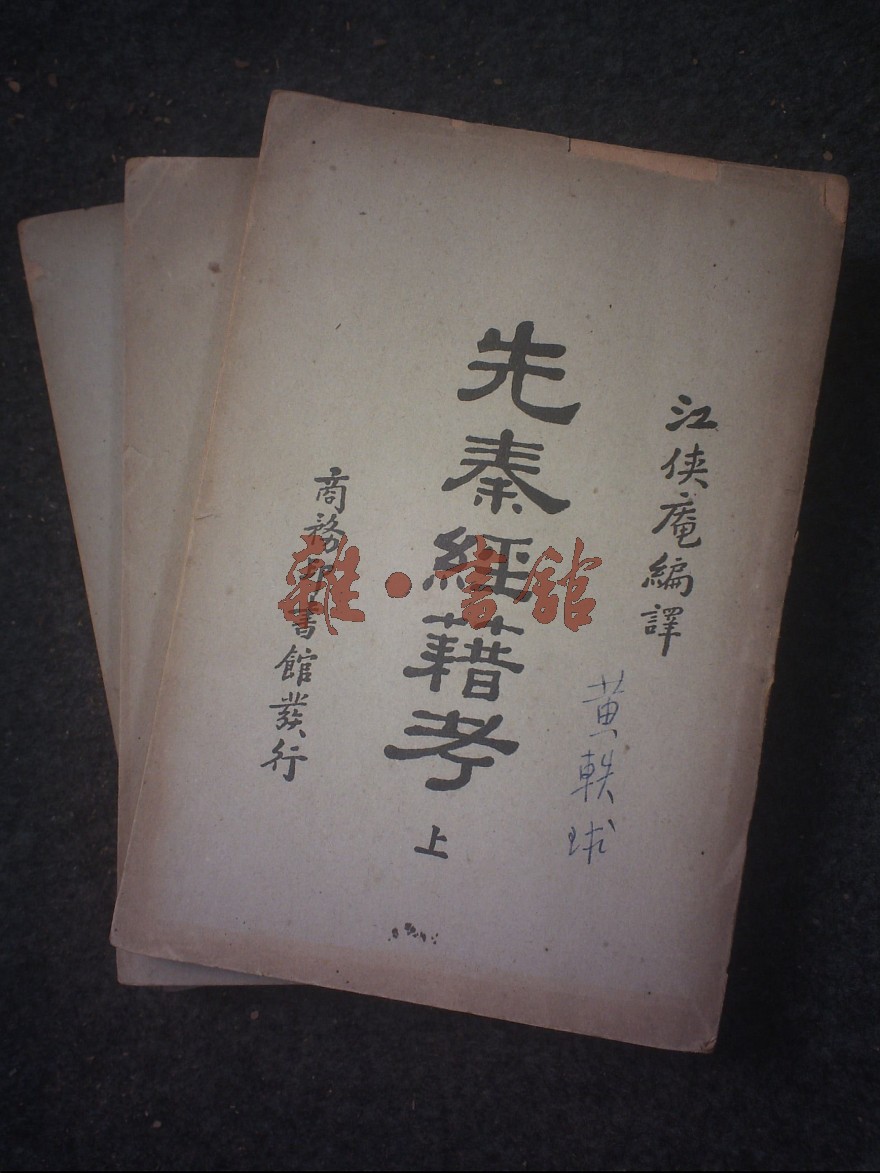 江俠庵編譯
先秦經籍考
上
商務印書館發行
黄軼球
雜·書館